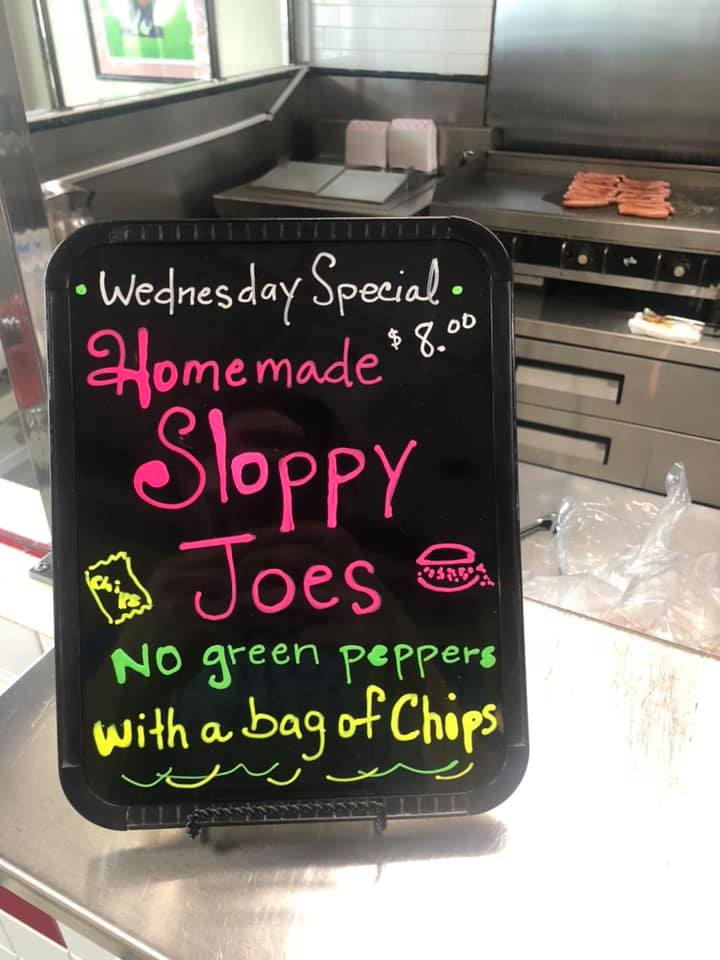 • Wednesday Special •
$8.00
Homemade
Sloppy
Joes
Chips
No green peppers
with a bag of Chips